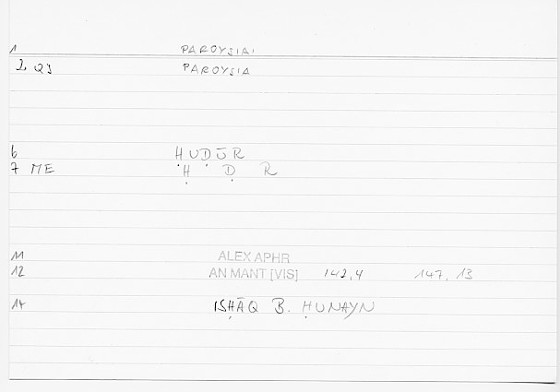 1 PAROYSIAI
2 QJ PAROYSIA
6 ḤUḌŪR
7 ME Ḥ Ḍ R
11 ALEX APHR
12 AN MANT [VIS] 142,4 147,13
14 ISḤĀQ B. ḤUNAYN